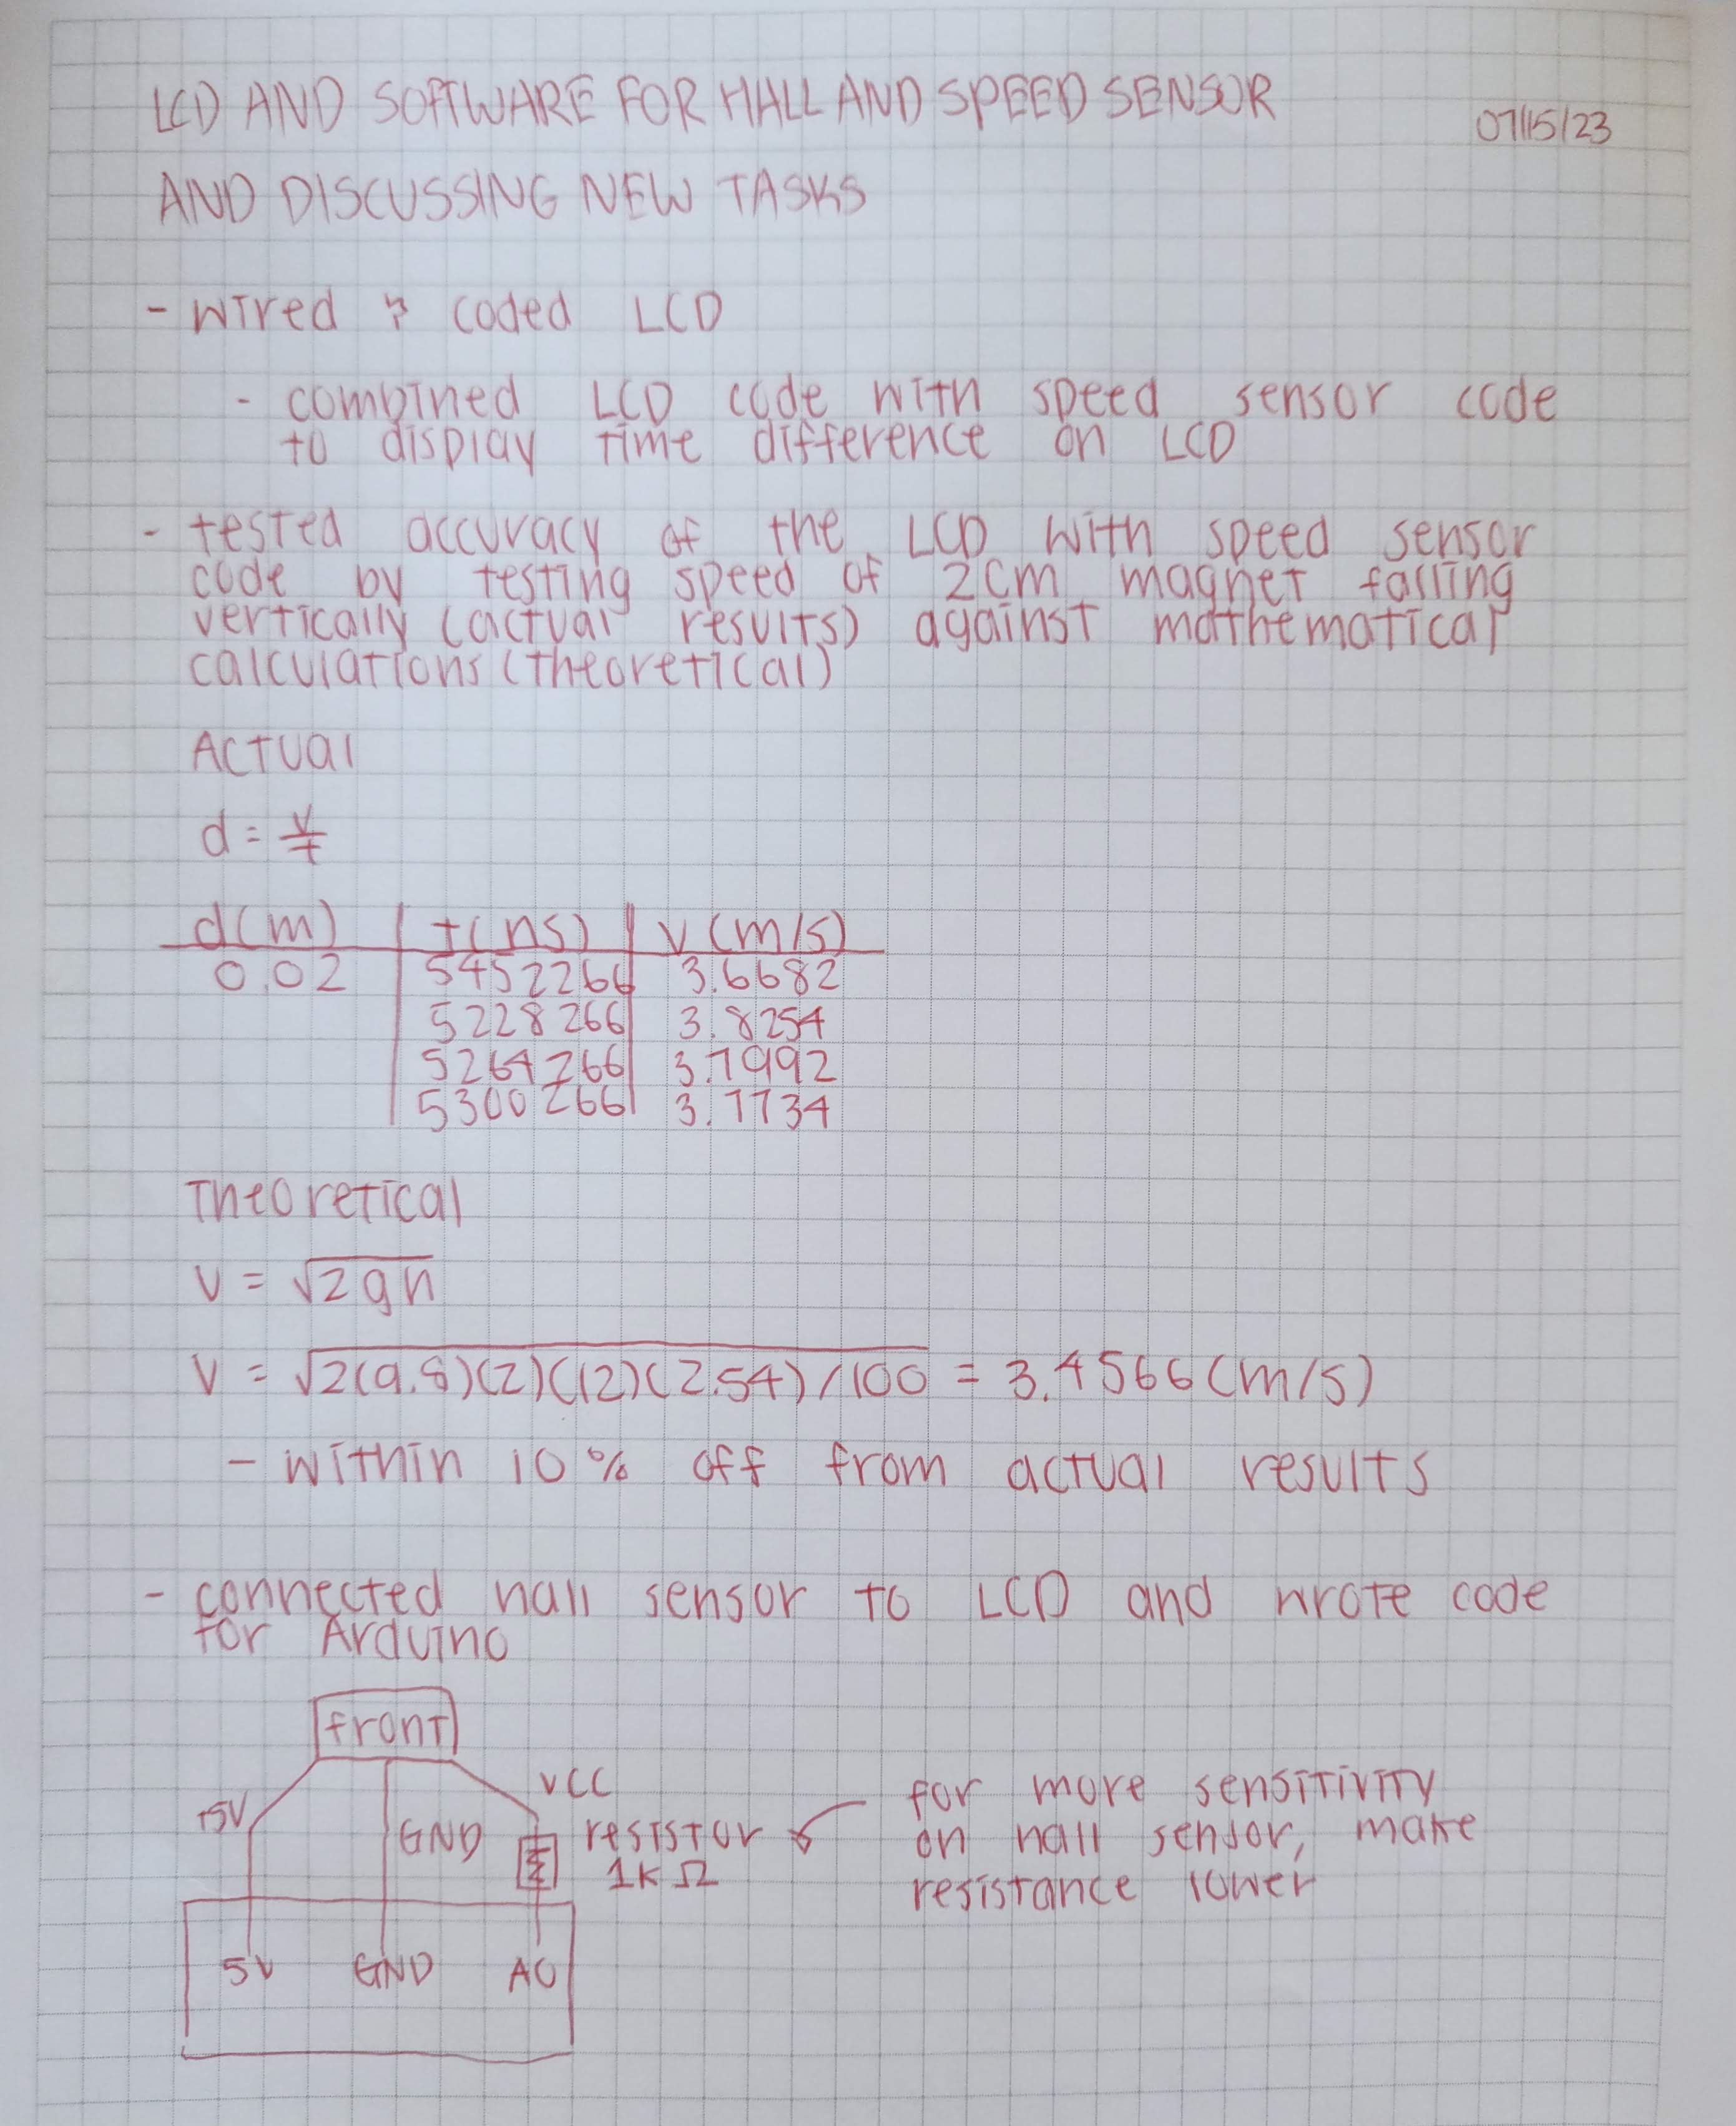 LCD AND SOFTWARE FOR HALL AND SPEED SENSOR
07/15/23
AND DISCUSSING NEW TASKS
- wired & coded LCD
- combined LCD code with speed sensor code
to display time difference on LCD
- tested accuracy of the LCD with speed sensor
code by testing speed of 2cm magnet falling
vertically (actual results) against mathematical
calculations (theoretical)
Actual
d = v/t
d(m) t(ns) v(m/s)
0.02 5452266 3.6682
5228266 3.8254
5264266 3.7992
5300266 3.7734
Theoretical
v = √2gh
v = √2(9.8)(2)(12)(2.54)/100 = 3.4566 (m/s)
- within 10% off from actual results
- connected hall sensor to LCD and wrote code
for Arduino
front
+5V
GND
VCC
resistor
1kΩ
for more sensitivity
on hall sensor, make
resistance lower
5V GND A0